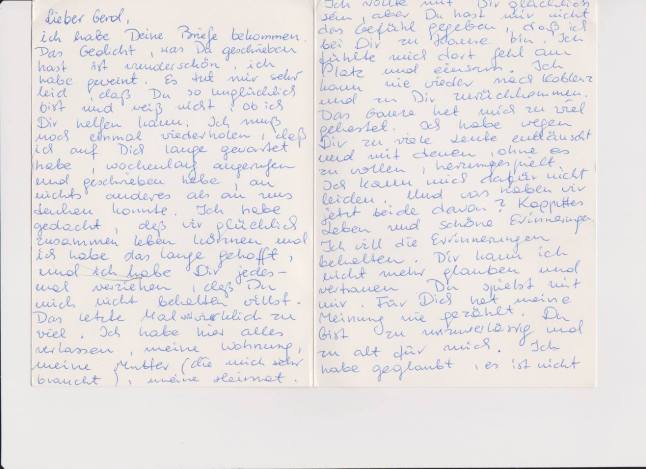 Lieber Gerd,
ich habe Deine Briefe bekommen.
Das Gedicht, was Du geschrieben
hast ist wunderschön, ich
habe geweint. Es tut mir sehr
leid, daß Du so unglücklich
bist und weiß nicht, ob ich
Dir helfen kann. Ich muß
noch einmal wiederholen, daß
ich auf Dich lange gewartet
habe, wochenlang angerufen
und geschrieben habe, an
nichts anderes als an uns
denken konnte. Ich habe
gedacht, daß wir glücklich
zusammen leben können und
ich habe das lange gehofft,
und ich habe Dir jedes-
mal verziehen, daß Du
mich nicht behalten willst.
Das letzte Mal wirklich zu
viel. Ich habe hier alles
verlassen, meine Wohnung,
meine Mutter (die mich sehr
braucht), meine Heimat.
Ich wollte mit Dir glücklich
sein, aber Du hast mir nicht
das Gefühl gegeben, daß ich
bei Dir zu Hause bin. Ich
fühlte mich dort fehl am
Platz und einsam. Ich
kann nie wieder nach Koblenz
und zu Dir zurückkommen.
Das Ganze hat mich zu viel
gekostet. Ich habe wegen
Dir zu viele Leute enttäuscht
und mit denen, ohne es
zu wollen, herumgespielt.
Ich kann mich dafür nicht
leiden. Und was haben wir
jetzt beide davon? Kapputtes
Leben und schöne Erinnerungen.
Ich will die Erinnerungen
behalten. Dir kann ich
nicht mehr glauben und
vertrauen Du spielst mit
mir. Für Dich hat meine
Meinung nie gezählt. Du
bist zu unzuverlässig und
zu alt für mich. Ich
habe geglaubt, es ist nicht